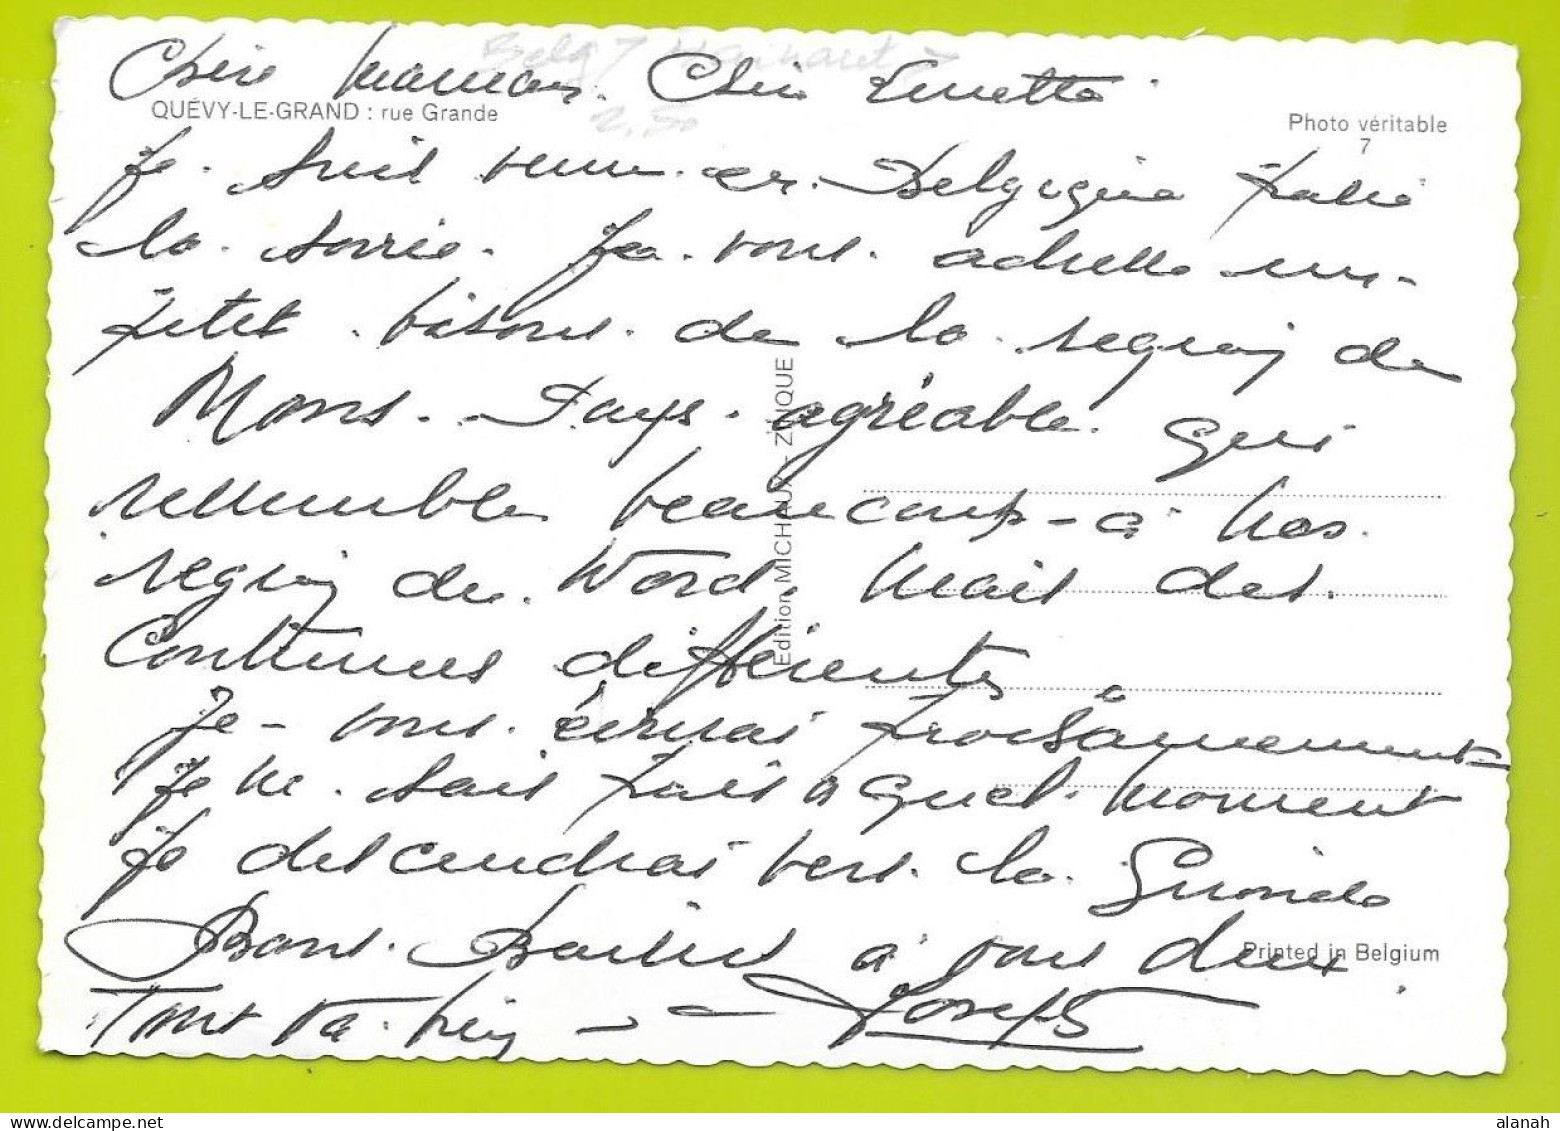 Chère Maman. Chère Ginette.
Belg 7 Hainaut
QUÉVY-LE-GRAND : rue Grande
Photo véritable
7
Je suis venu en Belgique
la soirée. Je vous achette un
petit bisous de la region de
Mons. Pays agréable qui
ressemble beaucoup à nos
region du Nord. Mais des
Coutumes différentes
Je vous écrirai prochainement
Je ne sais pas à quel moment
Je descendrai vers la Gironde
Bons Baisers à vous deux
Tout va bien - Joseph
Edition MICHAUX - ZUIQUE
Printed in Belgium
alanah